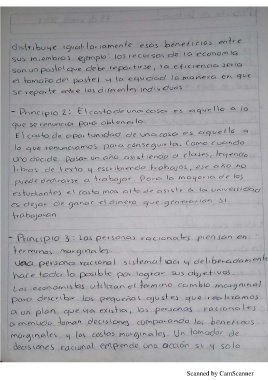 distribuye igualitariamente esos beneficios entre
sus miembros. ejemplo: los recursos de la economía
son un pastel que debe repartirse, la eficiencia sería
el tamaño del pastel y la equidad la manera en que
se reparte entre los diferentes individuos.
- Principio 2: El costo de una cosa es aquello a lo
que se renuncia para obtenerla.
El costo de oportunidad de una cosa es aquello a
lo que renunciamos para conseguirla. Como cuando
uno decide pasar un año asistiendo a clases, leyendo
libros de texto y escribiendo trabajos, ese año no
puede dedicarse a trabajar. Para la mayoría de los
estudiantes el costo mas alto de asistir a la universidad
es dejar de ganar el dinero que generarían si
trabajaran
- Principio 3: Las personas racionales piensan en
terminos marginales.
Una persona racional sistematica y deliberadamente
hace todo lo posible por lograr sus objetivos.
Los economistas utilizan el termino cambio marginal
para describir los pequeños ajustes que realizamos
a un plan que ya existia, las personas racionales
a menudo toman decisiones comparando los beneficios
marginales y los costos marginales. Un tomador de
decisiones racional emprende una acción si y solo
Scanned by CamScanner